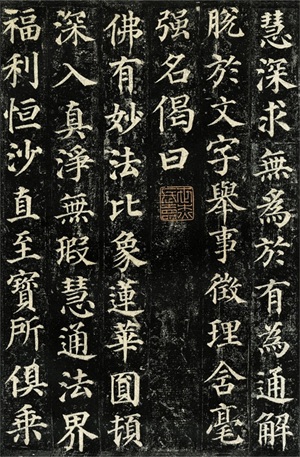 慧深求無為於有為通解
脫於文字舉事徵理含毫
强名偈曰
佛有妙法比象蓮華圓頓
深入真淨無瑕慧通法界
福利恒沙直至寶所俱乘